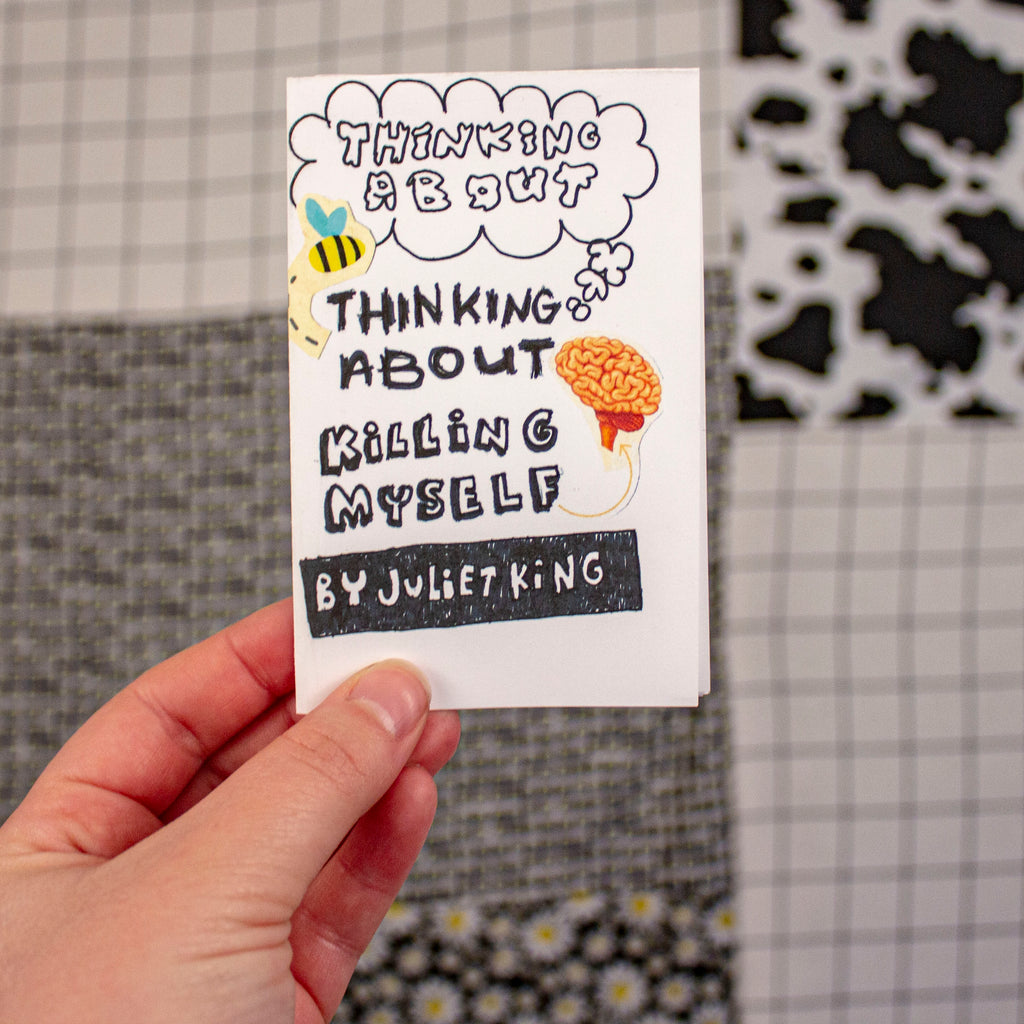 THiNKiNG
ABOUT
THINKING
ABOUT
KiLLiNG
MYSELF
BY JULiET KiNG